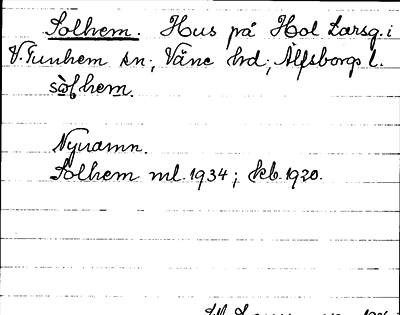 Solhem. Hus på Hol Larsg. i
V. Tunhem sn; Väne hd; Älfsborgs l.
sòlhem.
Nynamn.
Solhem ml. 1934; kb. 1920.